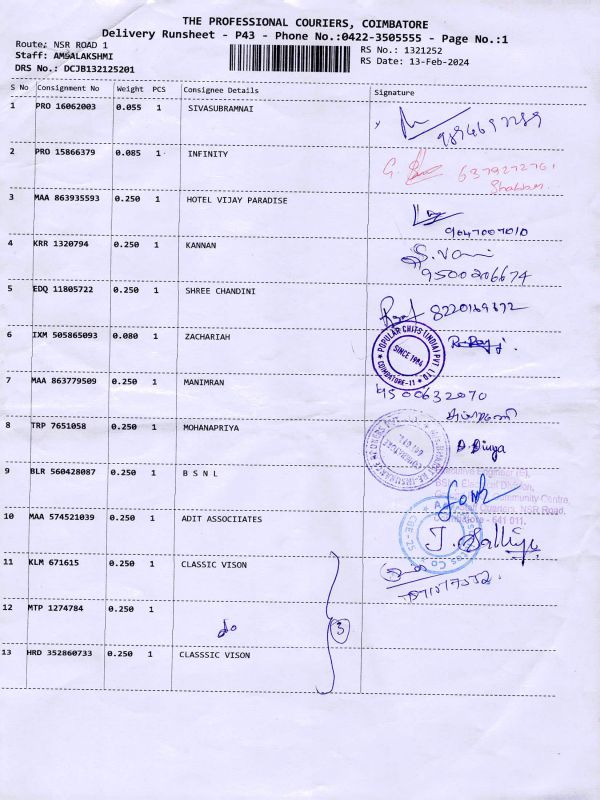 THE PROFESSIONAL COURIERS, COIMBATORE
Delivery Runsheet - P43 - Phone No.:0422-3505555 - Page No.:1
Route: NSR ROAD 1 RS No.: 1321252
Staff: AMSALAKSHMI RS Date: 13-Feb-2024
DRS No.: DCJB132125201
S No Consignment No Weight PCS Consignee Details Signature
1 PRO 16062003 0.055 1 SIVASUBRAMNAI
2 PRO 15866379 0.085 1 INFINITY
6379272761
3 MAA 863935593 0.250 1 HOTEL VIJAY PARADISE
9047007010
4 KRR 1320794 0.250 1 KANNAN S. Vani
9500206674
5 EDQ 11805722 0.250 1 SHREE CHANDINI
6 IXM 505865093 0.080 1 ZACHARIAH
POPULAR CHITS (INDIA) PVT. LTD.
SINCE 1984
COIMBATORE-11
7 MAA 863779509 0.250 1 MANIMRAN 9500632070
8 TRP 7651058 0.250 1 MOHANAPRIYA D. Divya
9 BLR 560428087 0.250 1 B S N L
10 MAA 574521039 0.250 1 ADIT ASSOCIATES
Coimbatore - 641 011.
11 KLM 671615 0.250 1 CLASSIC VISON
12 MTP 1274784 0.250 1 do 3
13 HRD 352860733 0.250 1 CLASSSIC VISON